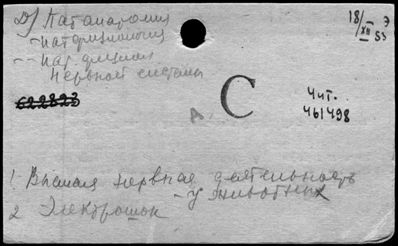 Д) Патанатомия
- патфизиология
-- пат. физиол
нервной системы
18/XII 53
Э
622823
А.
С
Чит.
461498
1. Высшая нервная деятельность
- у животных
2 Электрошок